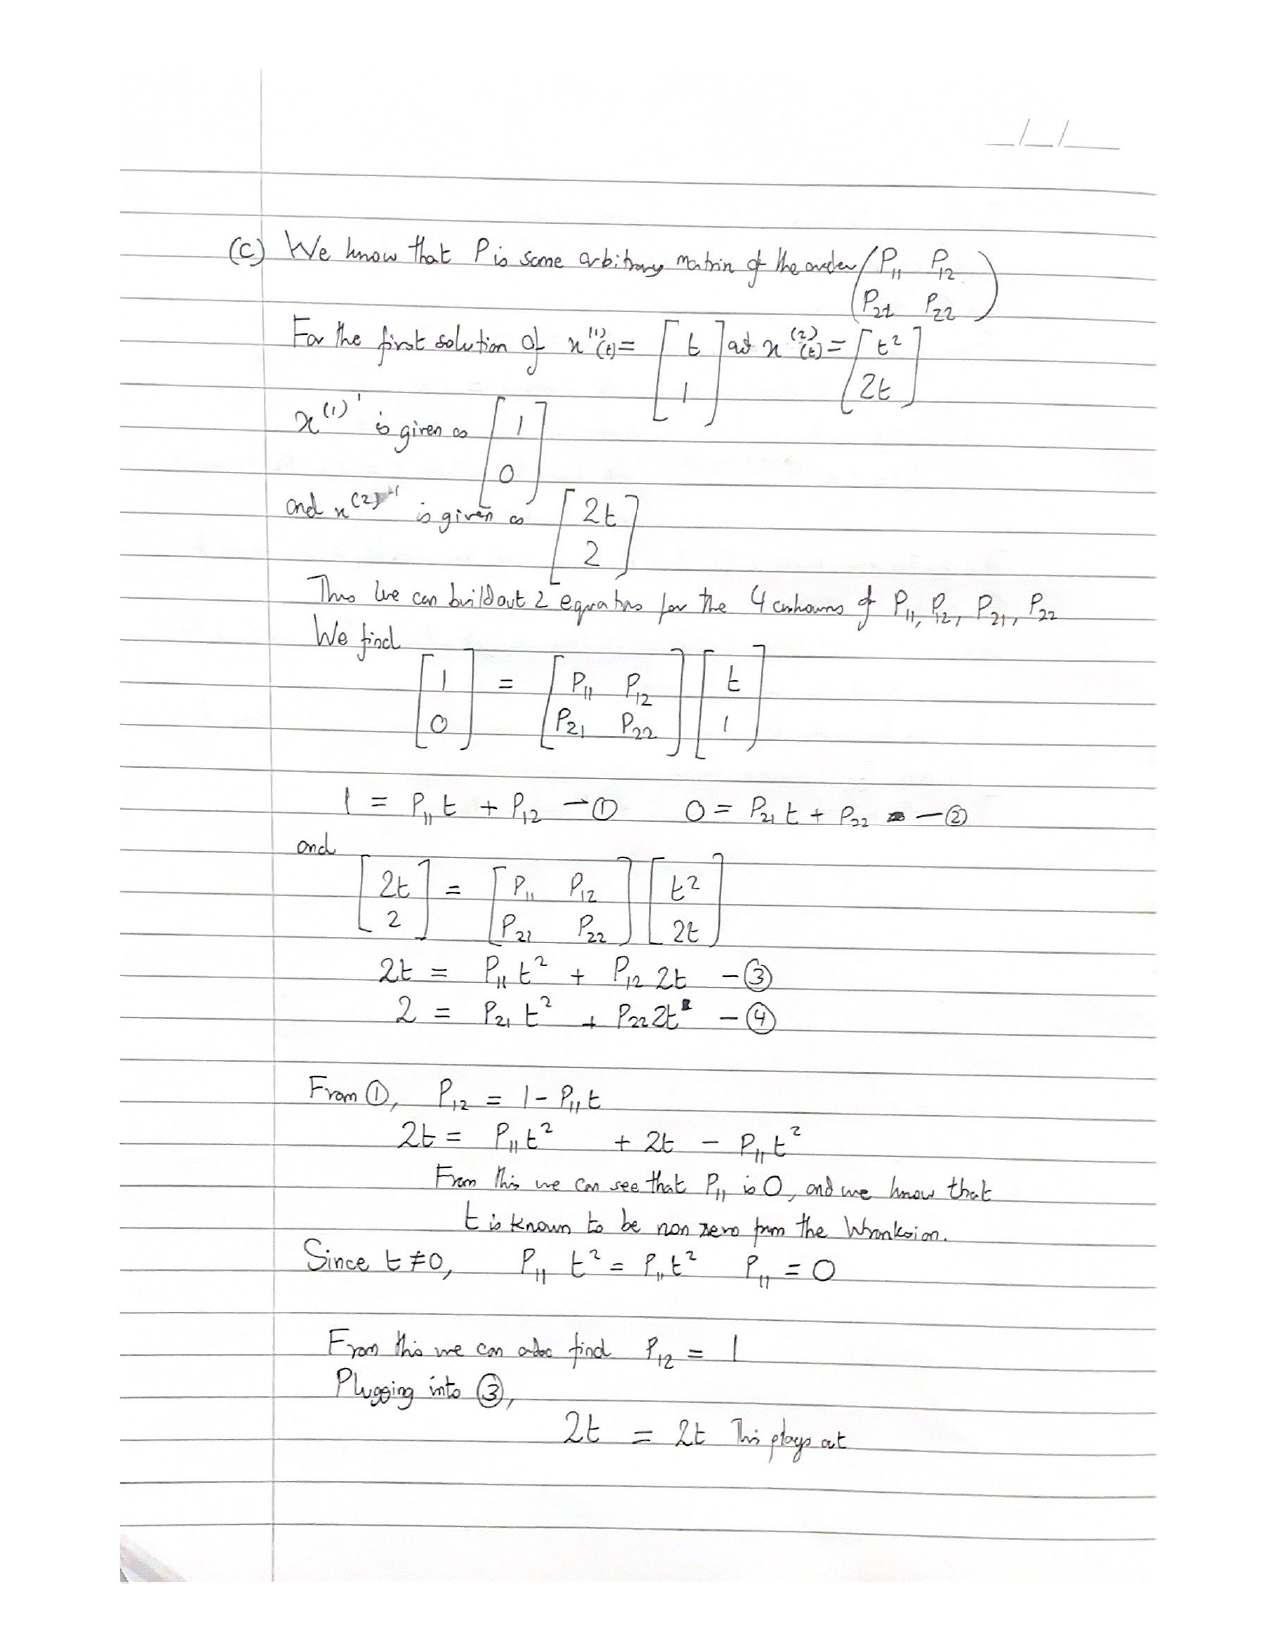 _/_/_
(C) We know that P is some arbitrary matrin of the order (P₁₁ P₁₂
P₂₁ P₂₂)
For the first solution of x⁽¹⁾(t) = [t 1] and x⁽²⁾(t) = [t² 2t]
x⁽¹⁾' is given as [1 0]
and x⁽²⁾' is given as [2t 2]
Thus we can build out 2 equations for the 4 unknowns of P₁₁, P₁₂, P₂₁, P₂₂
We find
[1 0] = [P₁₁ P₁₂ P₂₁ P₂₂] [t 1]
1 = P₁₁t + P₁₂ — ① 0 = P₂₁t + P₂₂ — ②
and
[2t 2] = [P₁₁ P₁₂ P₂₁ P₂₂] [t² 2t]
2t = P₁₁t² + P₁₂ 2t — ③
2 = P₂₁t² + P₂₂ 2t — ④
From ①, P₁₂ = 1 - P₁₁t
2t = P₁₁t² + 2t - P₁₁t²
From this we can see that P₁₁ is 0, and we know that
t is known to be non zero from the Wronksion.
Since t ≠ 0, P₁₁ t² = P₁₁t² P₁₁ = 0
From this we can also find P₁₂ = 1
Plugging into ③,
2t = 2t This plays out